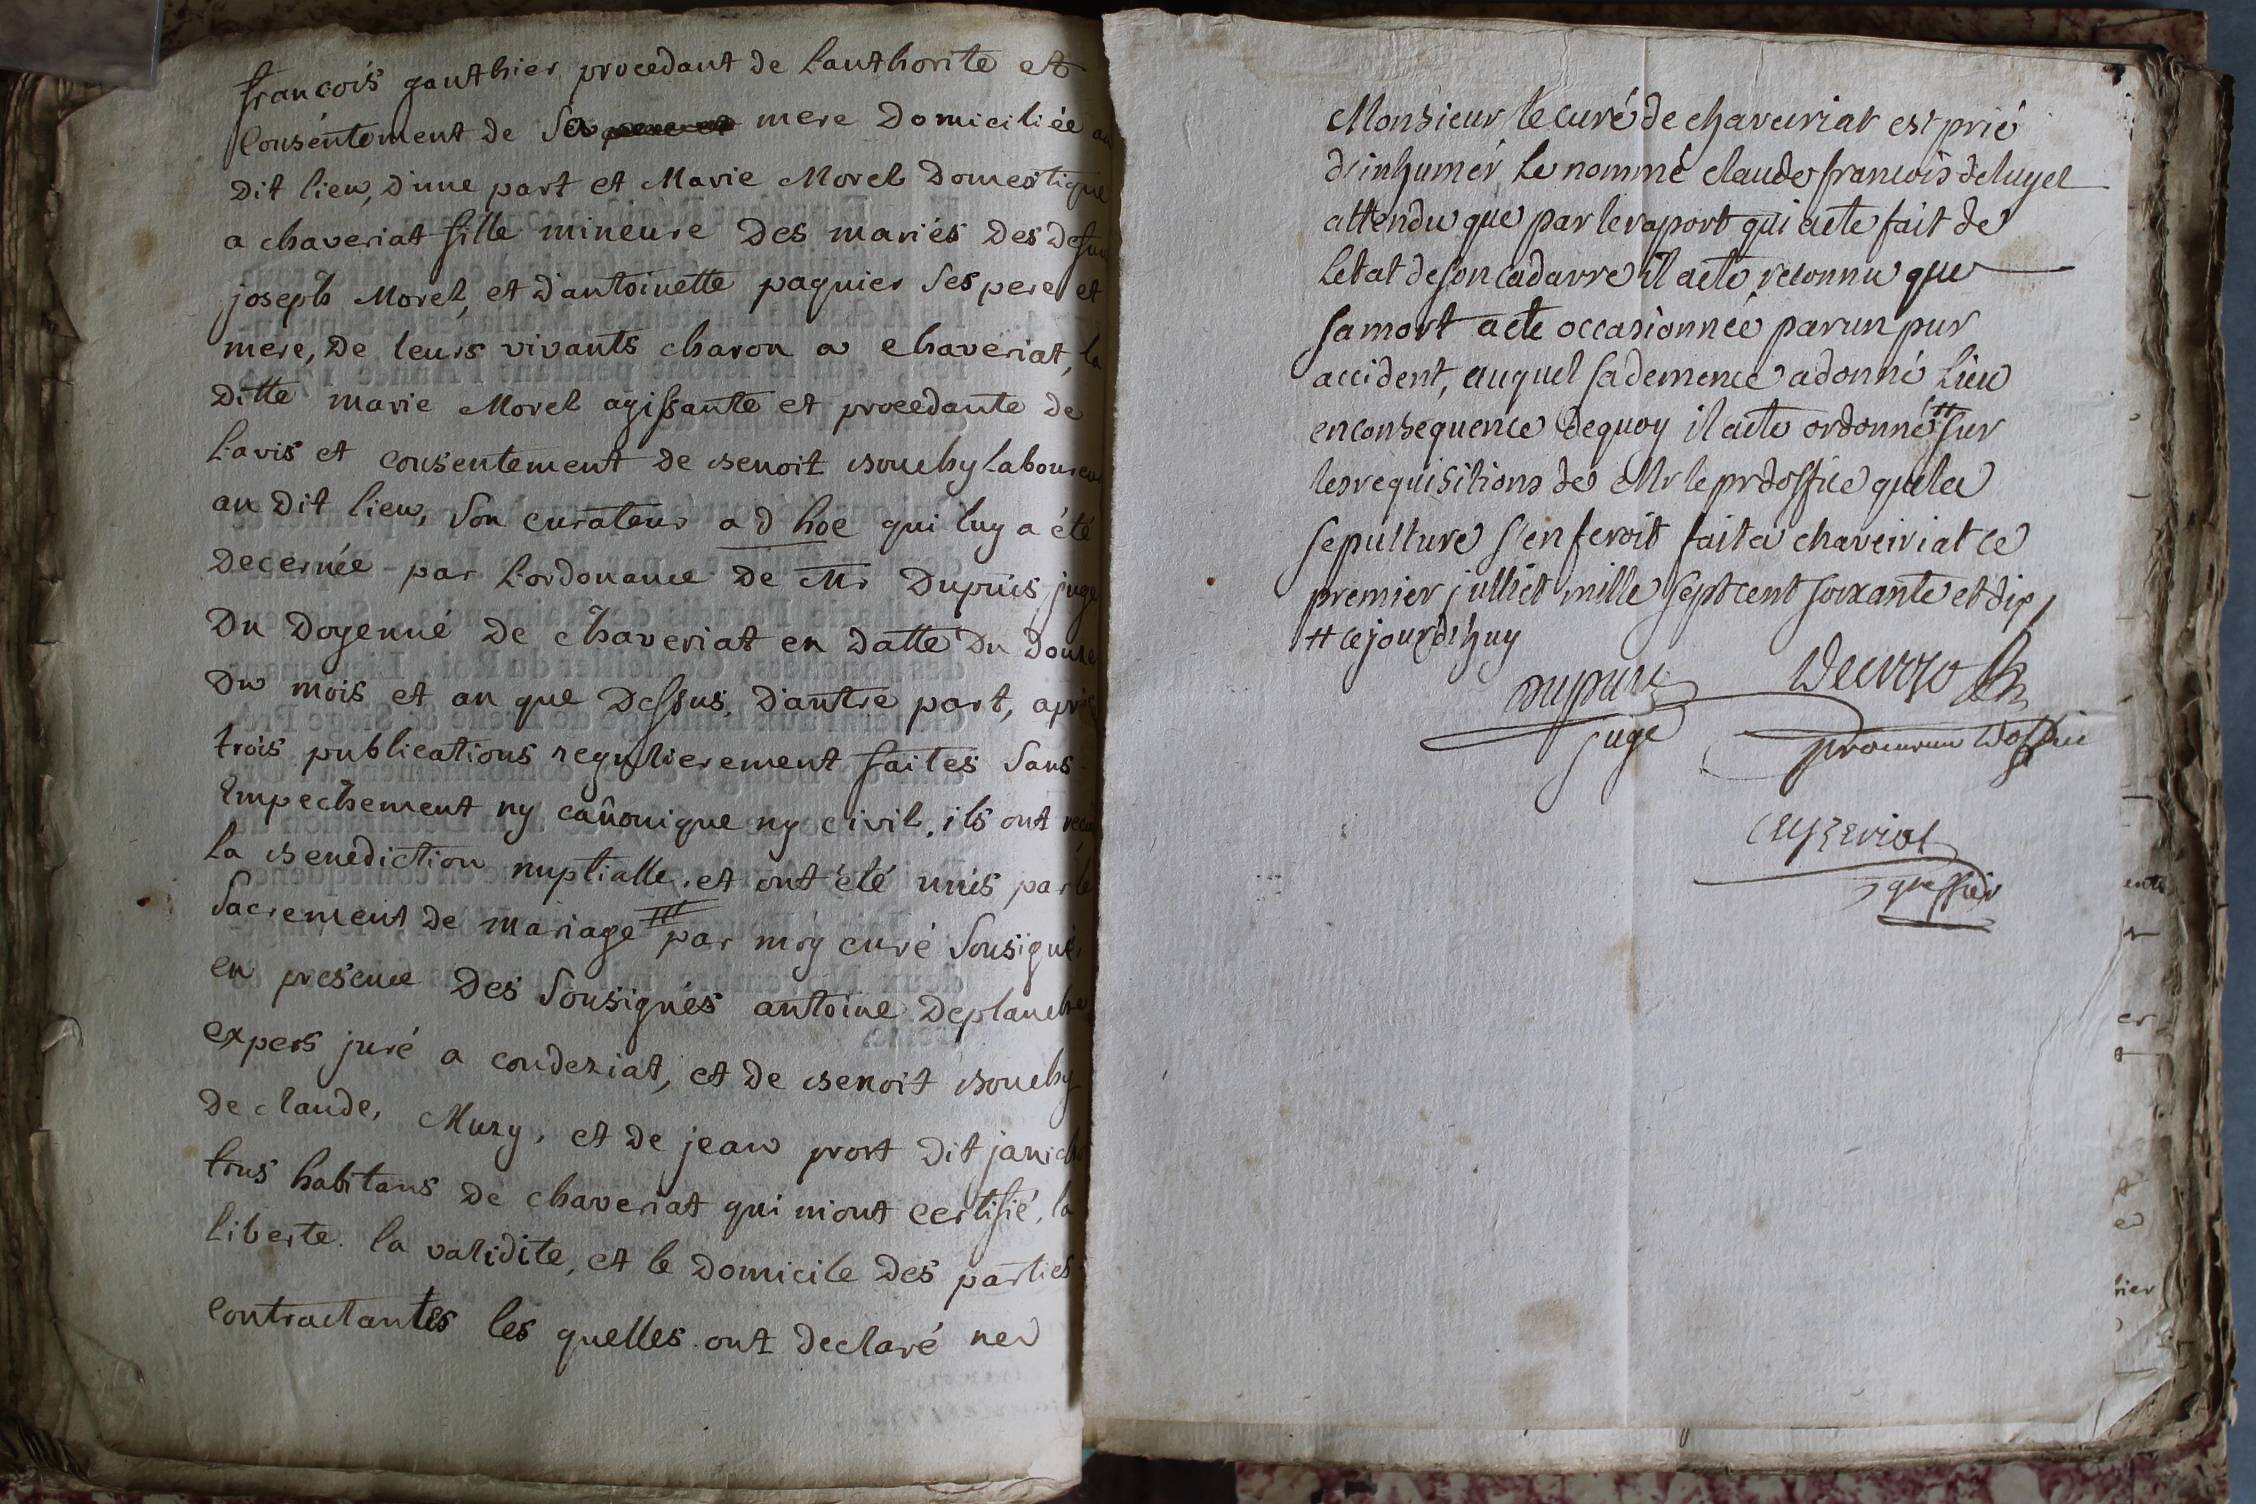 françois gauthier procedant de l'authorité et
consentement de sa mere domiciliée au
dit lieu, d'une part et Marie Morel domestique
a chaveriat fille mineure des mariés des defun
joseph Morel, et d'antoinette paquier ses pere et
mere, de leurs vivants charon a chaveriat, la
ditte marie Morel agissante et procedante de
l'avis et consentement de benoit bouchy laboureur
au dit lieu, son curateur ad hoc qui luy a été
decernée par l'ordonance de Mr Dupuis juge
du doyenné de chaveriat en datte du douze
du mois et an que dessus, d'autre part, apris
trois publications regulierement faites sans
empechement ny canonique ny civil, ils ont reçu
la benediction nuptialle, et ont été unis par le
sacrement de mariage par moy curé sousigné,
en presence des sousignés antoine deplanche
expers juré a condeziat, et de benoit bouchy
de claude, Muzy, et de jean prost dit janicho
tous habitans de chaveriat qui m'ont certifié, la
liberte. la validite, et le domicile des parties
contractantes les quelles ont declaré ne
Monsieur le curé de chaveiriat est prié
d'inhumér le nommé claude françois deluyet
attendu que par le raport qui aete fait de
l'etat de son cadavre il aete reconnu que
sa mort aete occasionneé par un pur
accident, auquel sa demence a donné lieu
en consequence de quoy il aete ordonné # sur
les requisitions de Mr le pr d'office que la
sepulture s'en feroit fait a chaveiriat ce
premier julliet mille sept cent soixante et dix
# ce jourd'huy
Dupuis
juge
procureur d'office
greffier
ente
er
nier